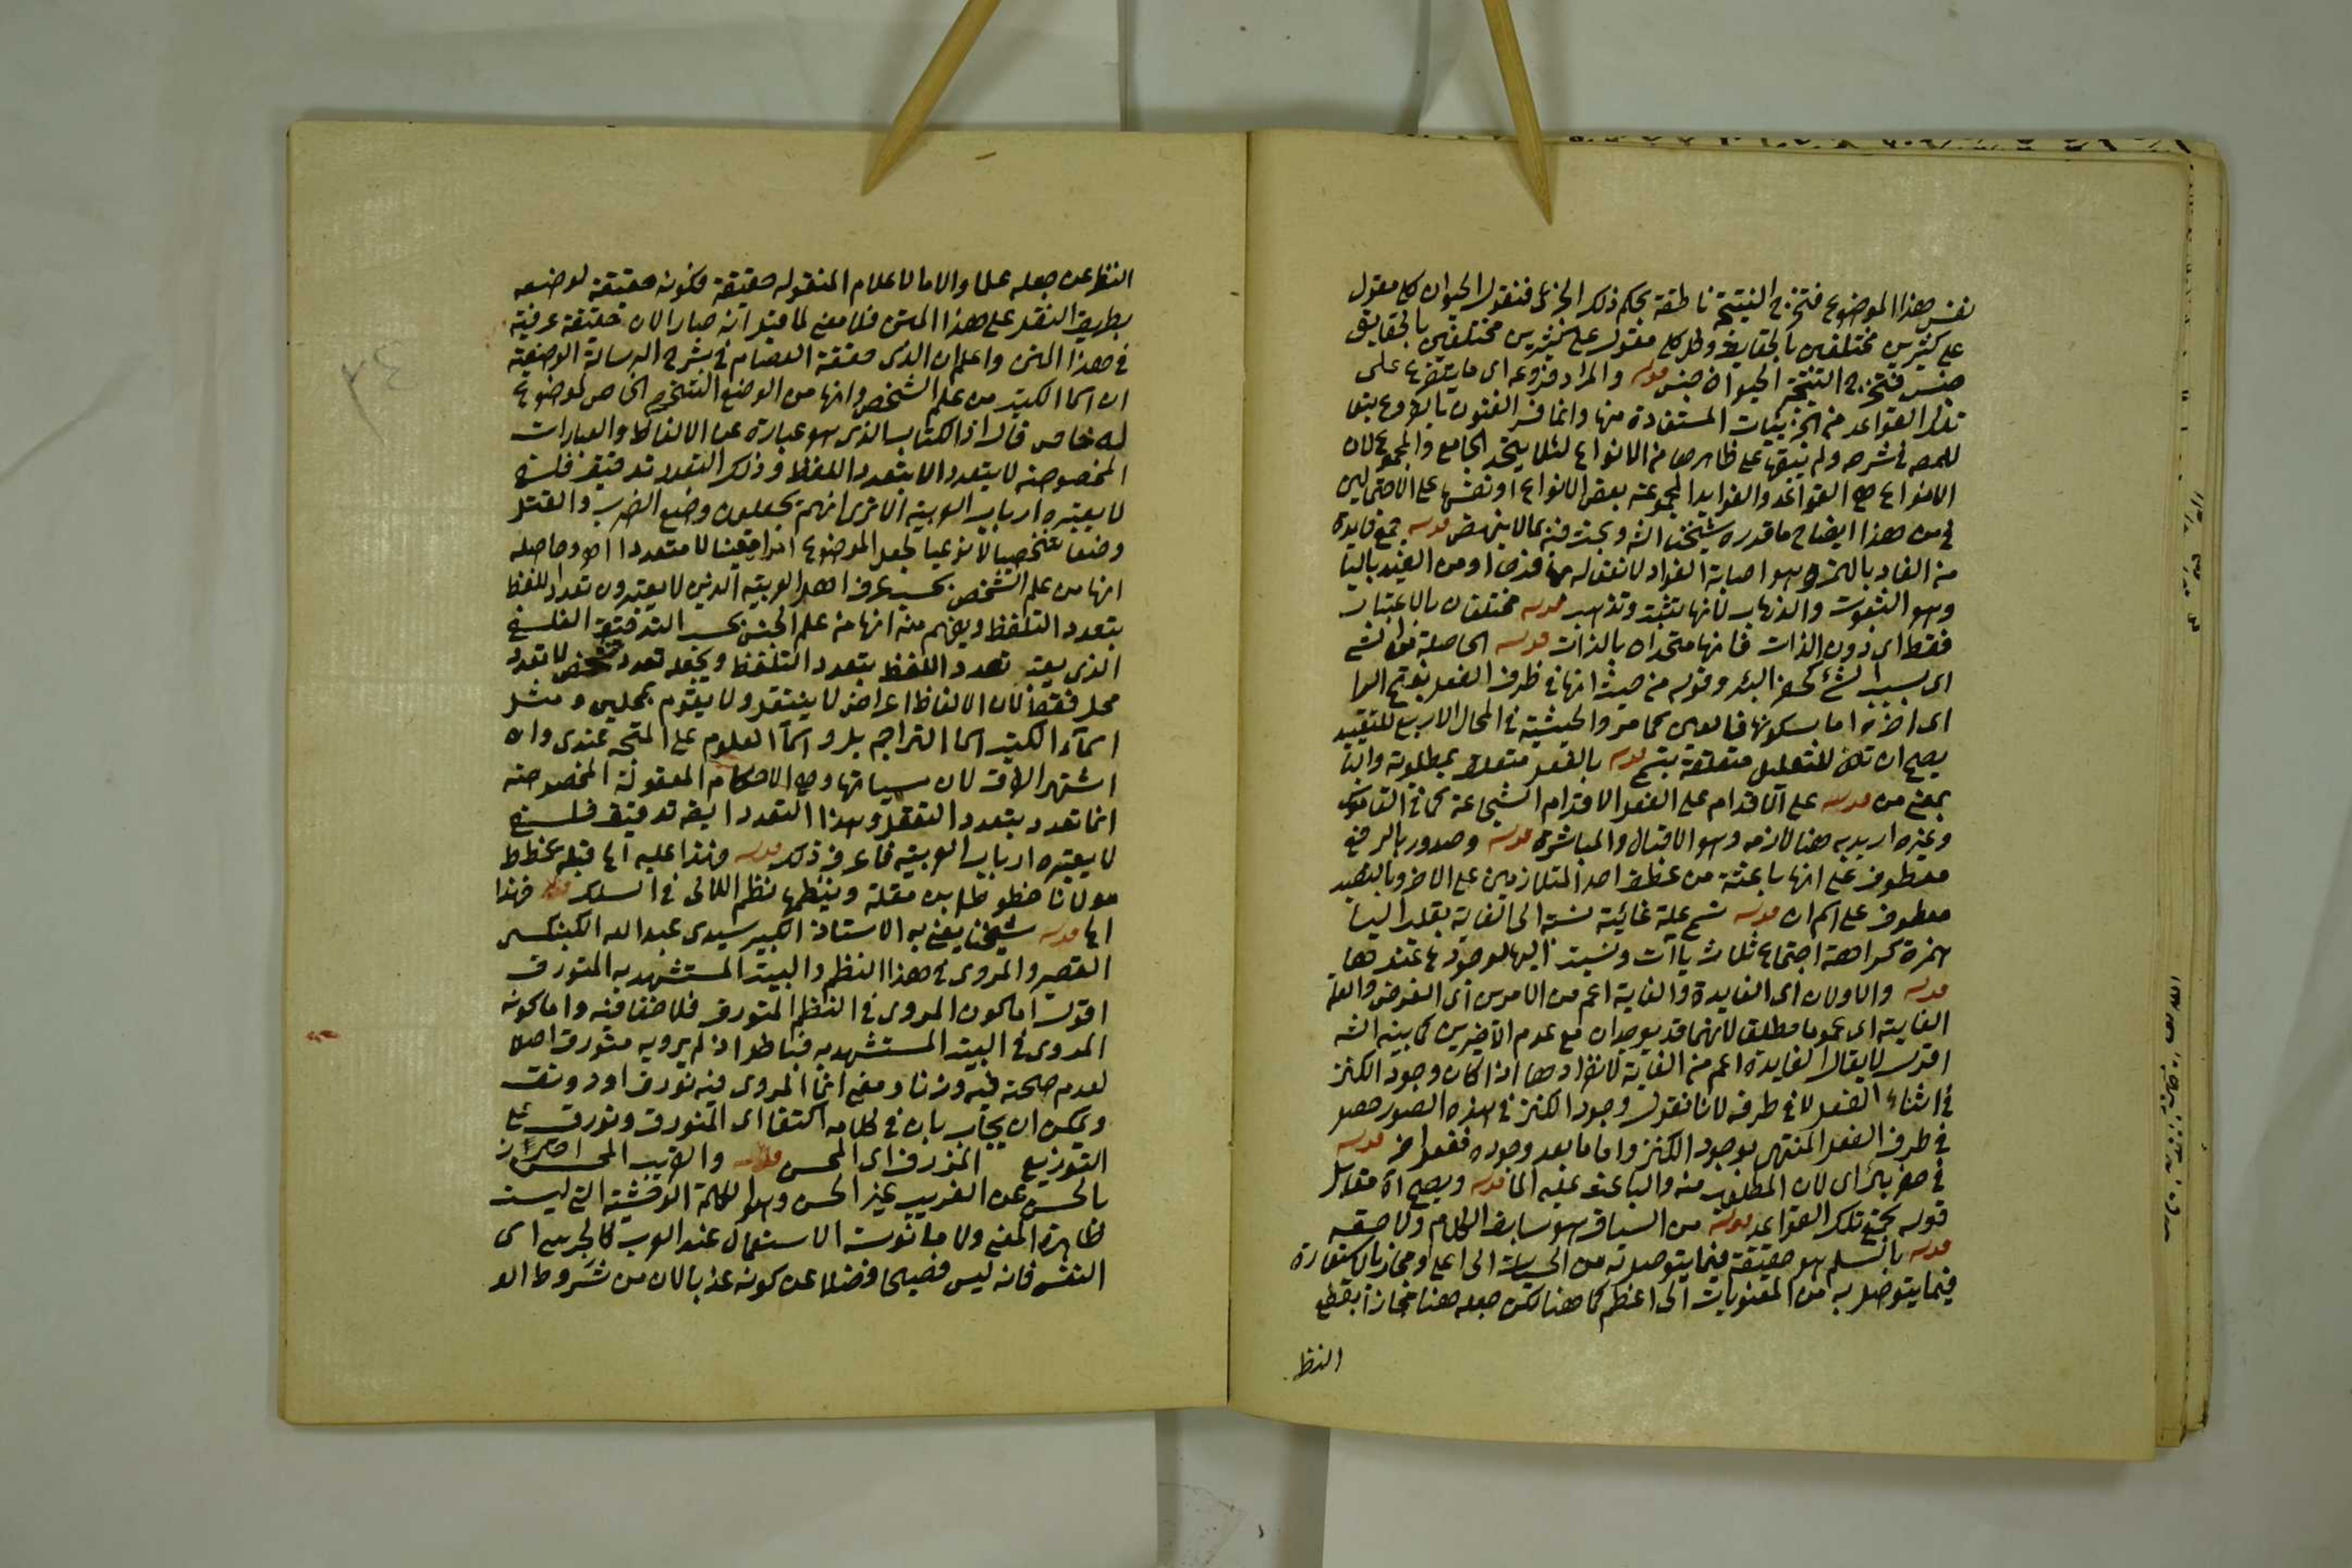 نفس هذا الموضوع فتخرج النتيجة ناطقة بحكم ذلك الجزئى فنقول الحيوان كلى مقول
على كثيرين مختلفين بالحقايق وكل كلى مقول على كثيرين مختلفين بالحقايق
جنس فتخرج النتيجة الحيوان جنس قوله والمراد فروعه اى ما يتفرع على
تلك القواعد من الجزئيات المستفادة منها وانما فسر الفنون بالفروع تبعا
للمصه فى شرحه ولم يبقها على ظاهرها من الانواع لئلا يتحد الجامع والمجموع لان
الانواع هى القواعد والفوايد المجموعة بعض الانواع او نفسها على الاحتمالين
فى من هذا ايضاح ما قدره شيخنا الشه وبحث فيه بما لا ينهض قوله جمع فايدة
من الفاد بالهمز وهو اصابة الفواد لا من الفيد باليا
وهو الثبوت والذهاب لانها تثبت وتذهب قوله مختلفان بالاعتبار
فقط اى دون الذات فانهما متحدان بالذات قوله الحاصلة من الشئ
اى بسبب الشئ كحفر البئر وقوله من حيث انها فى طرف الفعل بفتح الرا
اى اخره اما بسكونها فالعين كما مر والحيثية فى المحال الاربع للتقييد
يصح ان تكون للتعليل متعلقة بتسمى قوله بالفعل متعلق بمطلوبة والبا
بمعنى من قوله على الاقدام على الفعل الاقدام الشجاعة كما فى القاموس
وغيره اريد به هنا لازمه وهو الاقبال والمباشرة قوله وصدور بالرفع
معطوف على انها باعثة من عطف احد المتلازمين على الاخر وبالنصب
معطوف على اسم ان قوله تسمى علة غائية نسبة الى الغاية بقلب اليا
همزة كراهة اجتماع ثلاث ياآت ونسبت اليها لوجودها عندها
قوله والاولان اى الفايدة والغاية اعم من الامرين اى الغرض والعلة
الغايية اى عموما مطلقا لانهما قد يوجدان مع عدم الاخيرين كما بينه الشه
اقول لا يقال الفايدة اعم من الغاية لانفرادها اذا كان وجود الكنز
فى اثناء الفعل لا فى طرفه لانا نقول وجود الكنز فى هذه الصور حصل
فى طرف الفعل المنتهى بوجود الكنز واما ما بعد وجوده ففعل اخر قوله
فى حفر بئر اى لان المطلوب منه والباعث عليه الماء قوله ويصح ان مقابل
قوله بجميع تلك القواعد قوله من السباق هو سابق الكلام ولاحقه
قوله بالسلم هو حقيقة فيما يتوصل به من الحسيات الى اعلى ومجاز بالاستعارة
فيما يتوصل به من المعنويات الى اعظم كما هنا لكن جعله هنا مجازا بقطع
النظ
النظر عن جعله علما والا فالاعلام المنقوله حقيقة فكونه حقيقة لوضعه
بطريق النقل على هذا المتن فلا معنى لما قيل انه صار الان حقيقة عرفية
فى هذا المتن واعلم ان الذى حققه العصام فى شرح الرسالة الوضعية
ان اسما الكتب من علم الشخص وانها من الوضع الشخصى الخاص لموضوع
له خاص قال اذ الكتاب الذى هو عبارة عن الالفاظ والعبارات
المخصوصة لا يتعدد الا بتعدد اللفظ وذلك التعدد تدقيق فلسفى
لا يعتبره ارباب العربية الا ترى انهم يجعلون وضع الضرب والقتل
وضعا شخصيا لا نوعيا لجعل الموضوع امرا معينا لا متعددا اه وحاصله
انها من علم الشخص بحسب عرف اهل العربية الذين لا يعتبرون تعدد اللفظ
بتعدد التلفظ ويفهم منه انها من علم الجنس بحسب التدقيق الفلسفى
الذى يعتبر تعدد اللفظ بتعدد التلفظ ويجعله تعدد شخص لا تعدد
محل فقط لان الالفاظ اعراض لا ينتقل ولا يقوم بمحلين ومثل
اسماء الكتب اسما التراجم بل واسماء العلوم على المتجه عندى وان
اشتهر الفرق لان مسمياتها وهى الاحكام المعقولة المخصوصة
انما تعدد بتعدد التعقل وهذا التعدد ايضه تدقيق فلسفى
لا يعتبره ارباب العربية فاعرف ذلك قوله وهذا عليه اى قبله بخطط
مولانا خطوط ابن مقلة وينظمها نظم اللالى فى السلك قوله فهذا
اى قوله شيخنا يعنى به الاستاذ الكبير سيدى عبد الله الكبنكسى
القصر والمروى فى هذا النظم والبيت المستشهد به المتورق
اقول اما كون المروى فى النظم المتورق فلا خفا فيه واما كونه
المروى فى البيت المستشهد به فباطل اذ لم يرويه متورق اصلا
لعدم صحته فيه وزنا ومعنى انما المروى فيه تورق او رونق
ويمكن ان يجاب بان فى كلامه اكتفا اى المتورق وتورق على
التوزيع المزرق اى المحسن قوله والغريب المحسن احترز
بالحسن عن الغريب غير الحسن وهو الكلمة الوحشية التى ليست
ظاهرة المعنى ولا مانوسة الاستعمال عند العرب كالجرشى اى
النفس فانه ليس فصيحا فضلا عن كونه عذبا لان من شروط العذ